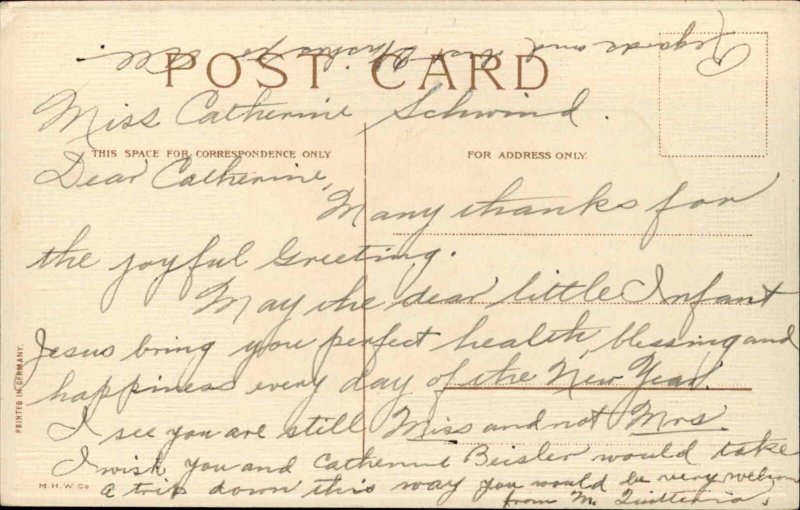 Regards and best wishes to all.
POST CARD
Miss Catherine Schwind.
THIS SPACE FOR CORRESPONDENCE ONLY
FOR ADDRESS ONLY.
Dear Catherine,
Many thanks for
the joyful Greeting.
May the dear little Infant
Jesus bring you perfect health, blessing and
happiness every day of the New Year.
I see you are still Miss and not Mrs.
I wish you and Catherine Beisler would take
a trip down this way you would be very welcom
from M.
PRINTED IN GERMANY.
M.H.W.Co